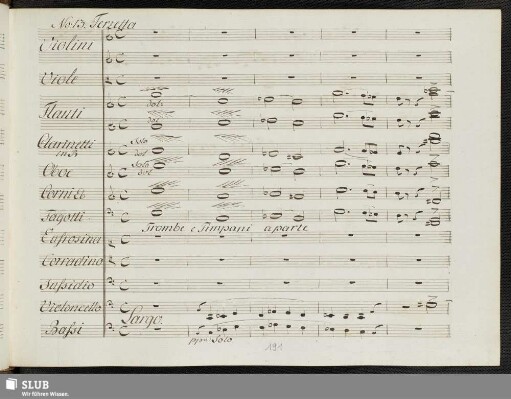 No. 13. Terzetto
Violini
Viole
Flauti
Solo
Clarinetti
Solo
Oboe
Solo
Corni
Fagotti
Trombe e Timpani a parte
Eufrosina
Corradino
Sussidio
Violoncello
Largo.
Bassi
Solo
191
SLUB
Wir führen Wissen.